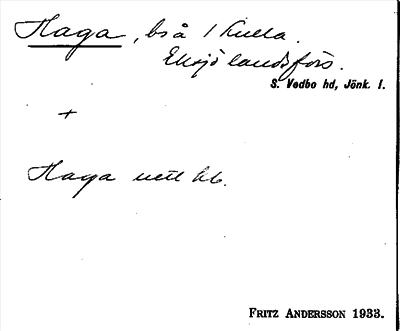 Haga, bs å 1 Kulla.
Eksjö landsförs.
S. Vedbo hd, Jönk. l.
+
Haga
FRITZ ANDERSSON 1933.